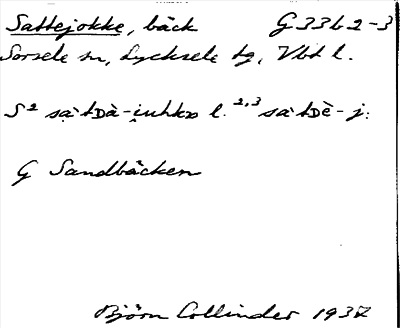 Sattejokke, bäck G33b2-3
Sorsele sn, Lycksele tg, Vbt l.
S² l. ²,³
G Sandbäcken
Björn Collinder 1937